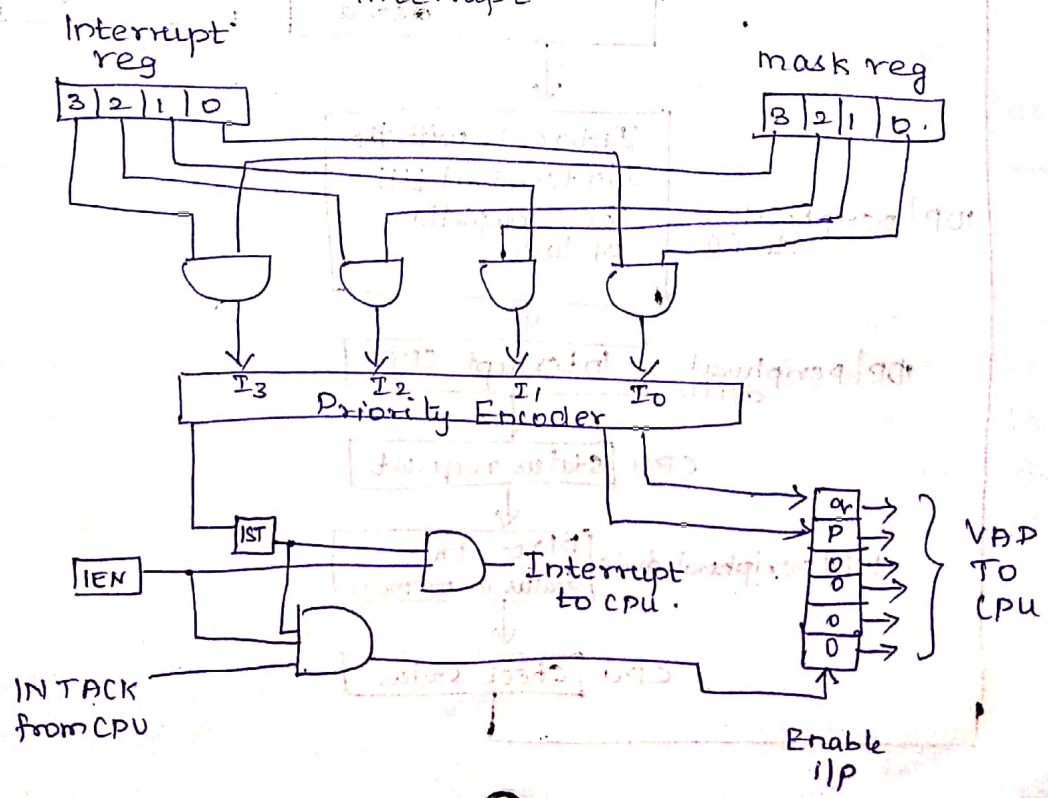 Interrupt
Interrupt
reg
mask reg
3 2 1 0
3 2 1 0
I3 I2 I1 I0
Priority Encoder
IST
IEN
Interrupt
to CPU.
INTACK
from CPU
q
P
0
0
0
0
VAD
TO
CPU
Enable
i/p